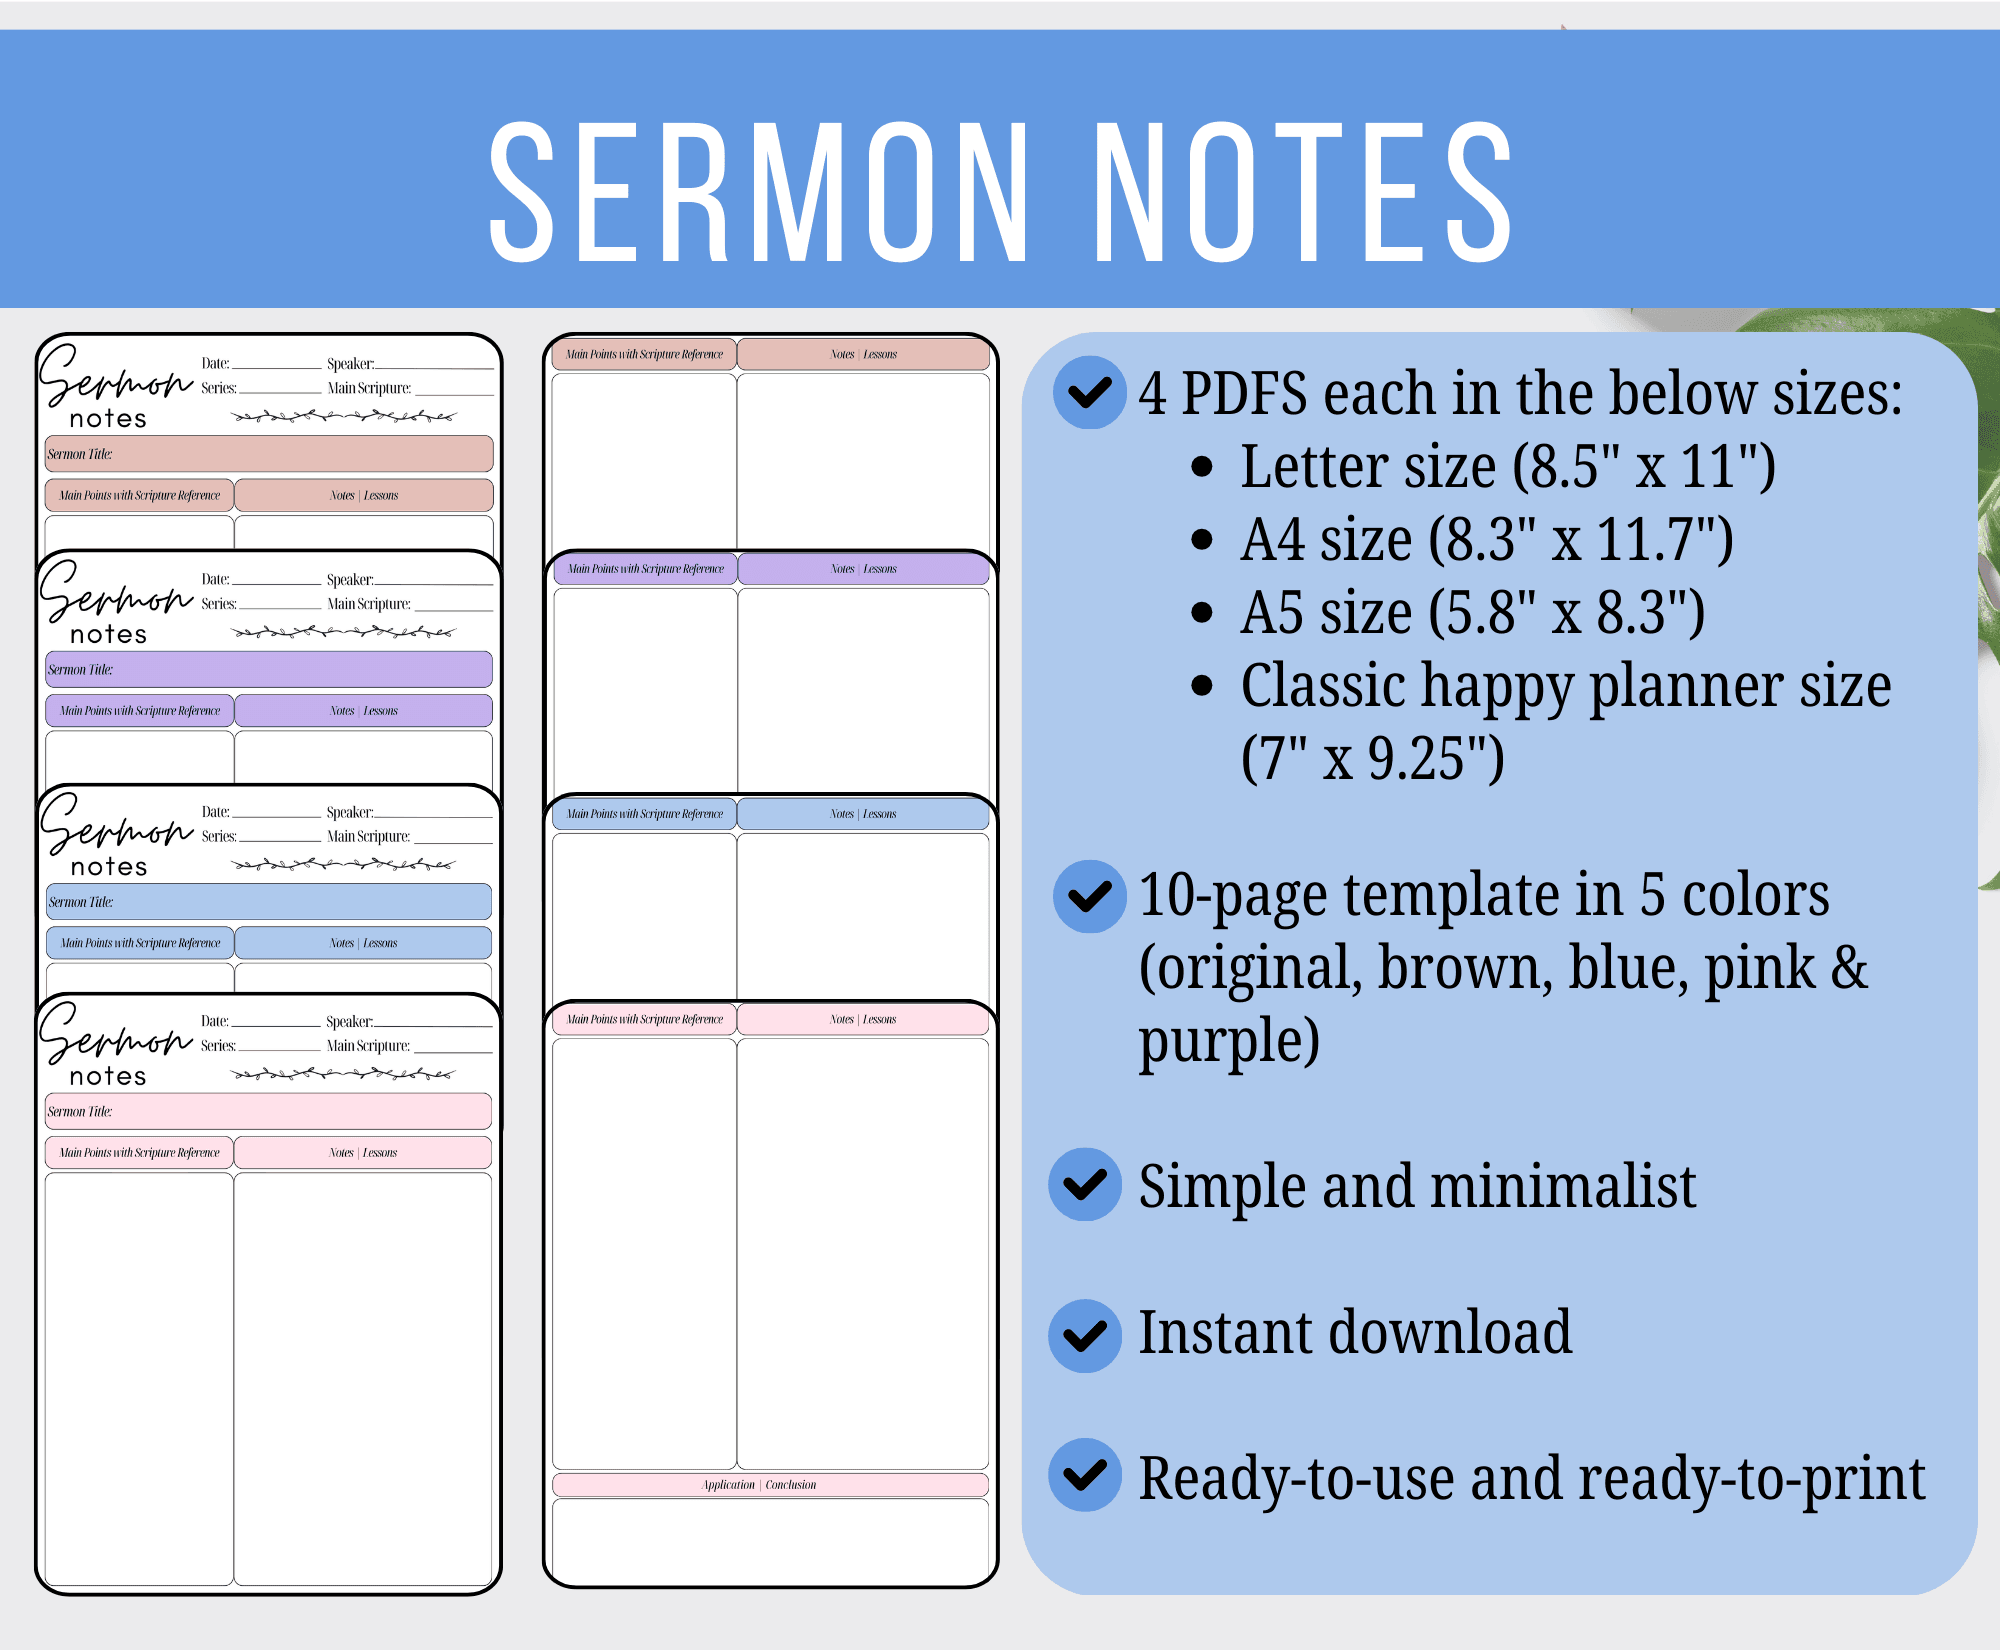 SERMON NOTES
Sermon
notes
Date: Speaker:
Series: Main Scripture:
Sermon Title:
Main Points with Scripture Reference Notes | Lessons
Sermon
notes
Date: Speaker:
Series: Main Scripture:
Sermon Title:
Main Points with Scripture Reference Notes | Lessons
Sermon
notes
Date: Speaker:
Series: Main Scripture:
Sermon Title:
Main Points with Scripture Reference Notes | Lessons
Sermon
notes
Date: Speaker:
Series: Main Scripture:
Sermon Title:
Main Points with Scripture Reference Notes | Lessons
Main Points with Scripture Reference Notes | Lessons
Main Points with Scripture Reference Notes | Lessons
Main Points with Scripture Reference Notes | Lessons
Main Points with Scripture Reference Notes | Lessons
Application | Conclusion
4 PDFS each in the below sizes:
• Letter size (8.5" x 11")
• A4 size (8.3" x 11.7")
• A5 size (5.8" x 8.3")
• Classic happy planner size
(7" x 9.25")
10-page template in 5 colors
(original, brown, blue, pink &
purple)
Simple and minimalist
Instant download
Ready-to-use and ready-to-print